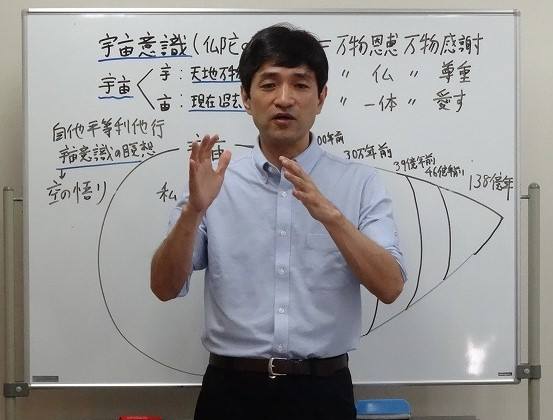 宇宙意識(仏陀の = 万物恩恵 万物感謝
宇宙 < 宇:天地万物 〃 仏 〃 尊重
宙:現在過去 〃 一体 〃 愛す
自他平等利他行
宇宙意識の瞑想
↓
空の悟り
宇宙
私
00年前
30万年前
39億年前
46億年前
138億年